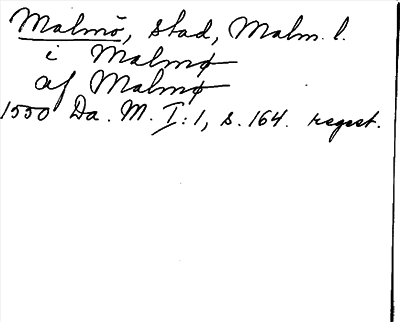 Malmö, stad, Malm. l.
i Malmø
af Malmø
1550 Da. M. I:1, s. 164. regest.